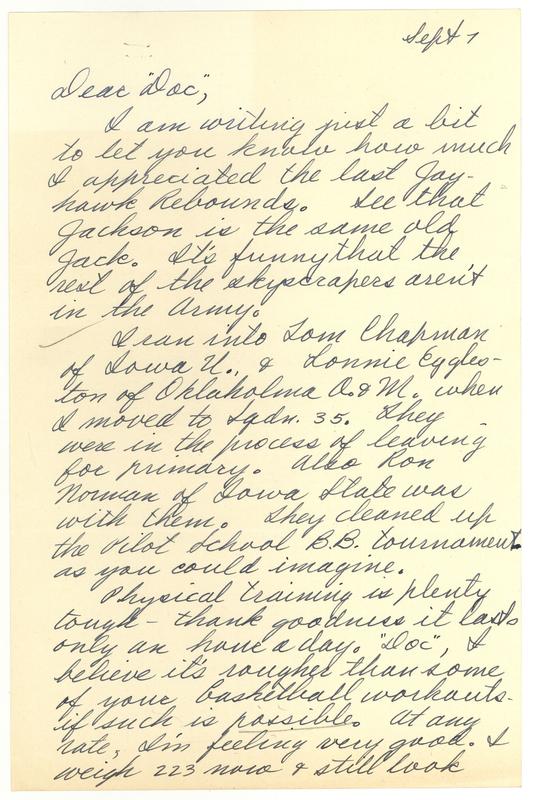 Sept 7
Dear "Doc",
I am writing just a bit
to let you know how much
I appreciated the last Jay-
hawk Rebounds. See that
Jackson is the same old
Jack. It's funny that the
rest of the skyscrapers aren't
in the Army.
I ran into Tom Chapman
of Iowa U., & Lonnie Eggles-
ton of Oklaholma A. & M. when
I moved to Sqdn. 35. They
were in the process of leaving
for primary. Also Ron
Norman of Iowa State was
with them. They cleaned up
the Pilot School B.B. tournament
as you could imagine.
Physical training is plenty
tough - thank goodness it lasts
only an hour a day. "Doc", I
believe it's rougher than some
of your basketball workouts -
if such is possible. At any
rate, I'm feeling very good. I
weigh 223 now & still look